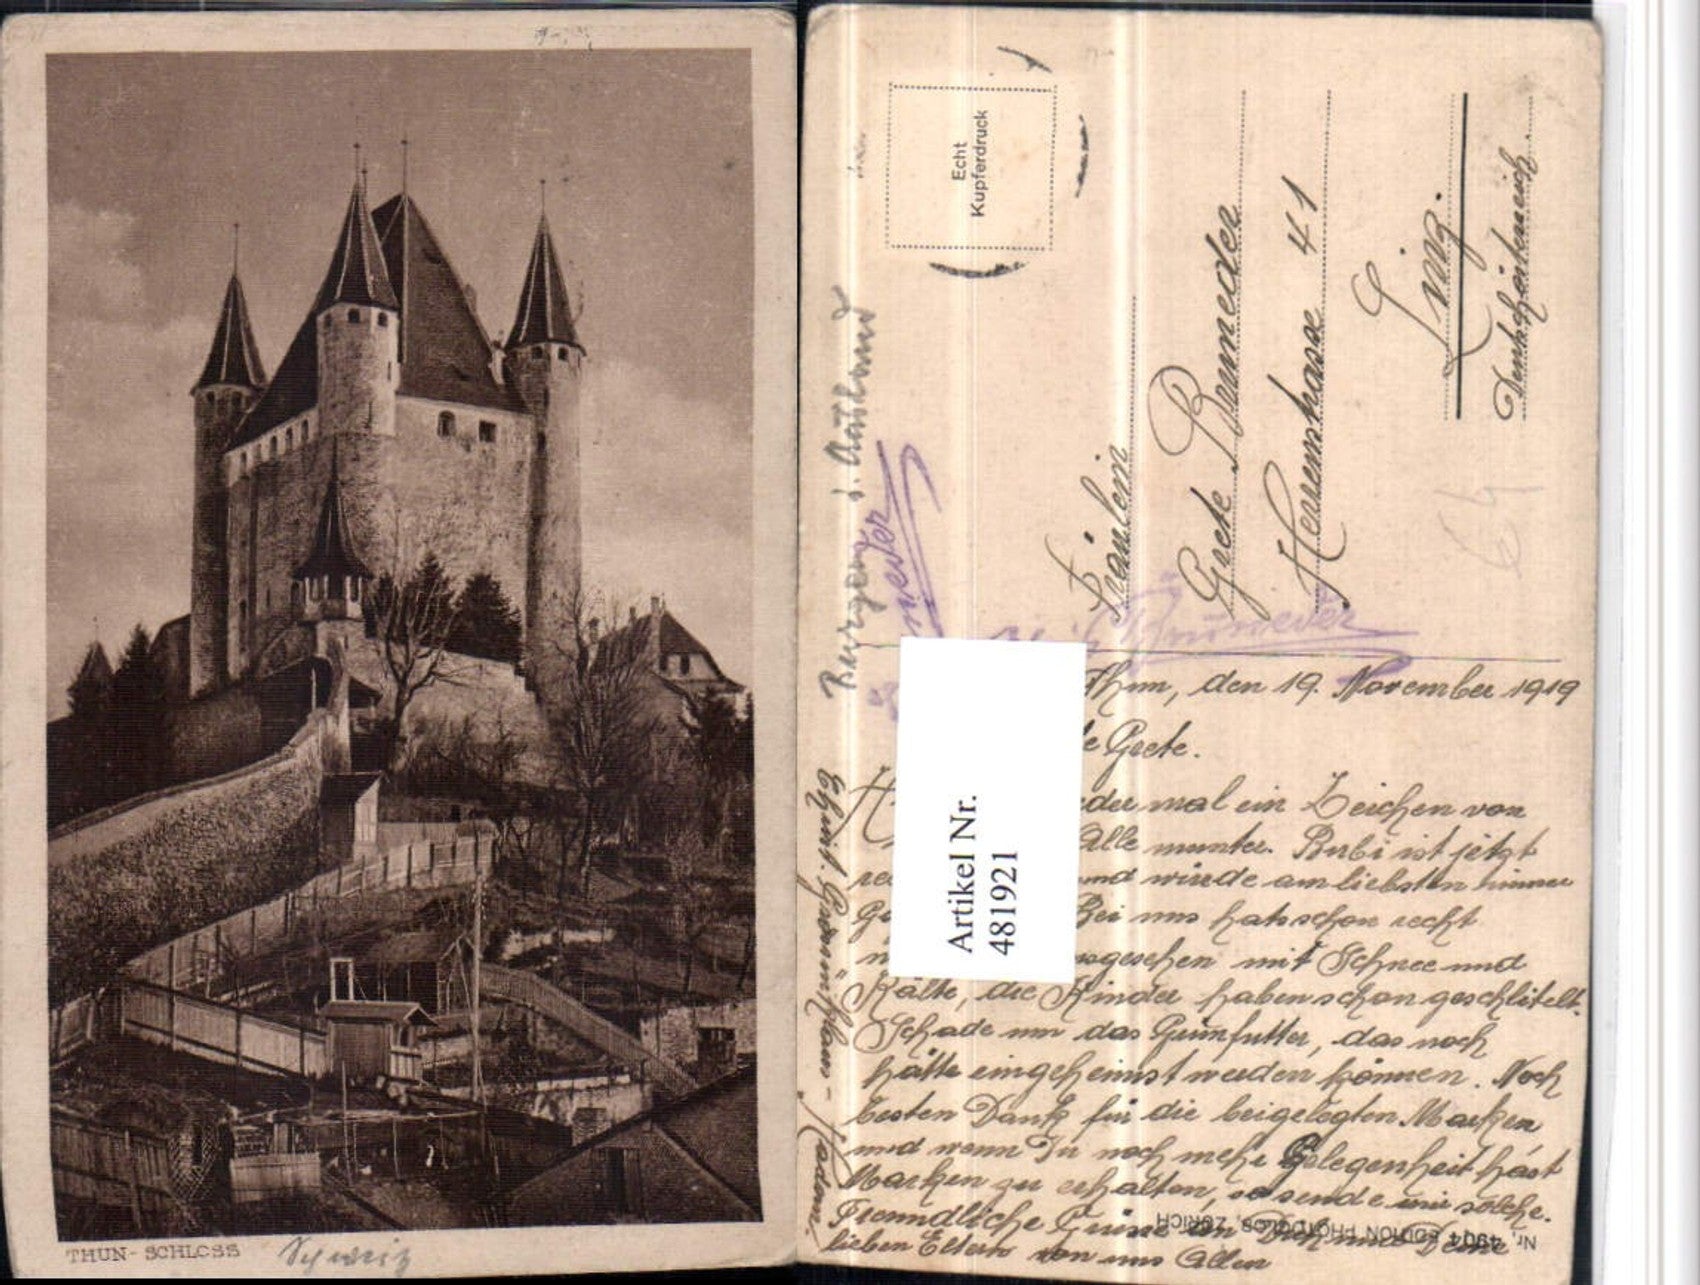 THUN - SCHLOSS
Schweiz
Echt
Kupferdruck
Fräulein
Grete Brumeder
Herrenhasse 41
Linz.
Deutschösterreich.
Burgen i. Ausland
Brumeder
Artikel Nr.
481921
Thun, den 19. November 1919
Grete.
mal ein Zeichen von
Alle munter. Bubi ist jetzt
und würde am liebsten immer
Bei uns hats schon recht
mit Schnee und
Kälte, die Kinder haben schon geschlitelt.
Schade um das Grünfutter, das noch
hätte eingeheimst werden können. Noch
besten Dank für die beigelegten Marken
und wenn Du noch mehr Gelegenheit hast
Marken zu erhalten, so sende mir solche.
Freundliche Grüsse an Dich und Deine
lieben Eltern von uns Allen
Nr. 4904 EDITION PHOTOGLOB, ZÜRICH